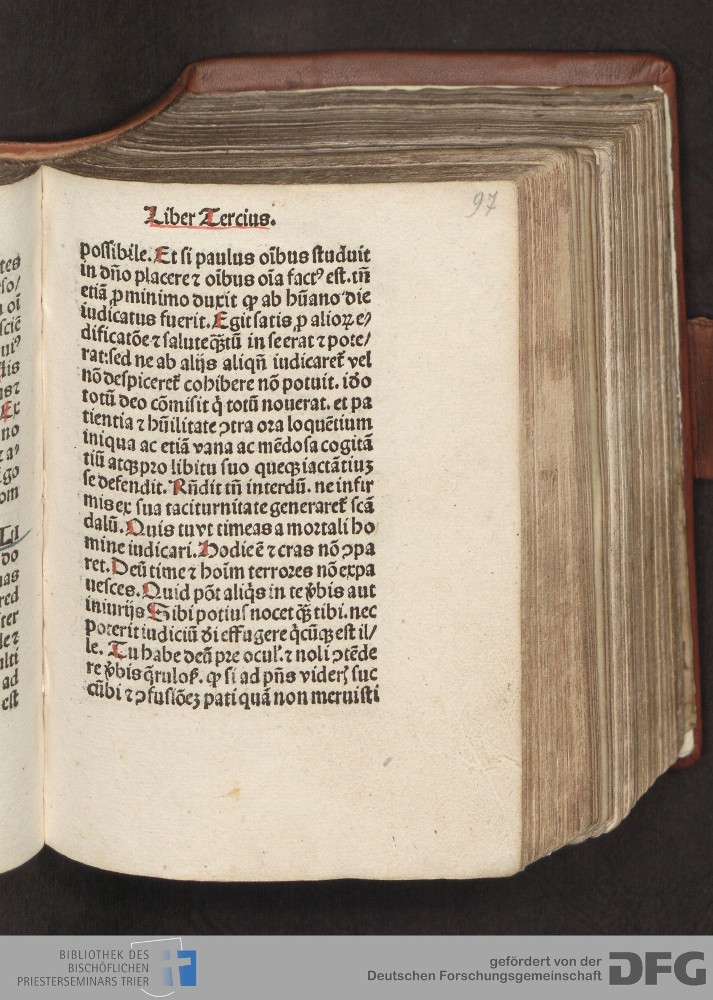 97
Liber Tercius.
possibile. Et si paulus oībus studuit
in dn̄o placere ⁊ oībus oīa factꝰ est. tn̄
etiā ꝓ minimo duxit ꝙ ab hūano die
iudicatus fuerit. Egit satis ꝓ alioꝝ e/
dificatōe ⁊ salute q̄ꝫtū in se erat ⁊ pote/
rat: sed ne ab alijs aliqn̄ iudicaret᷑ vel
nō despiceret᷑ cohibere nō potuit. iđo
totū deo cōmisit q̇ totū nouerat. et pa
tientia ⁊ hūilitate ꝯtra ora loquētium
iniqua ac etiā vana ac mēdosa cogitā
tiū atqꝫ pro libitu suo queqꝫ iactātiuꝫ
se defendit. Rn̄dit tn̄ interdū. ne infir
mis ex sua taciturnitate generaret᷑ scā
dalū. Quis tu vt timeas a mortali ho
mine iudicari. Hodie ē ⁊ cras nō ꝯpa
ret. Deū time ⁊ hoīm terrores nō expa
uesces. Quid pōt aliq̇s in te v̓bis aut
iniurijs Sibi potius nocet q̄ꝫ tibi. nec
poterit iudiciū đi effugere q̇cūqꝫ est il/
le. Tu habe deū pre ocul᷑. ⁊ noli ꝯtēde
re v̓bis q̄rulos᷑. ꝙ si ad pn̄s viderꝭ suc
cūbi ⁊ ꝯfusiōeꝫ pati quā non meruisti
tes
so/
oī
sciē
uiꝰ
Ex
no
go
om
LI
do
uas
red
iter
le ⁊
ulti
ad
est
BIBLIOTHEK DES
BISCHÖFLICHEN
PRIESTERSEMINARS TRIER
gefördert von der
Deutschen Forschungsgemeinschaft
DFG